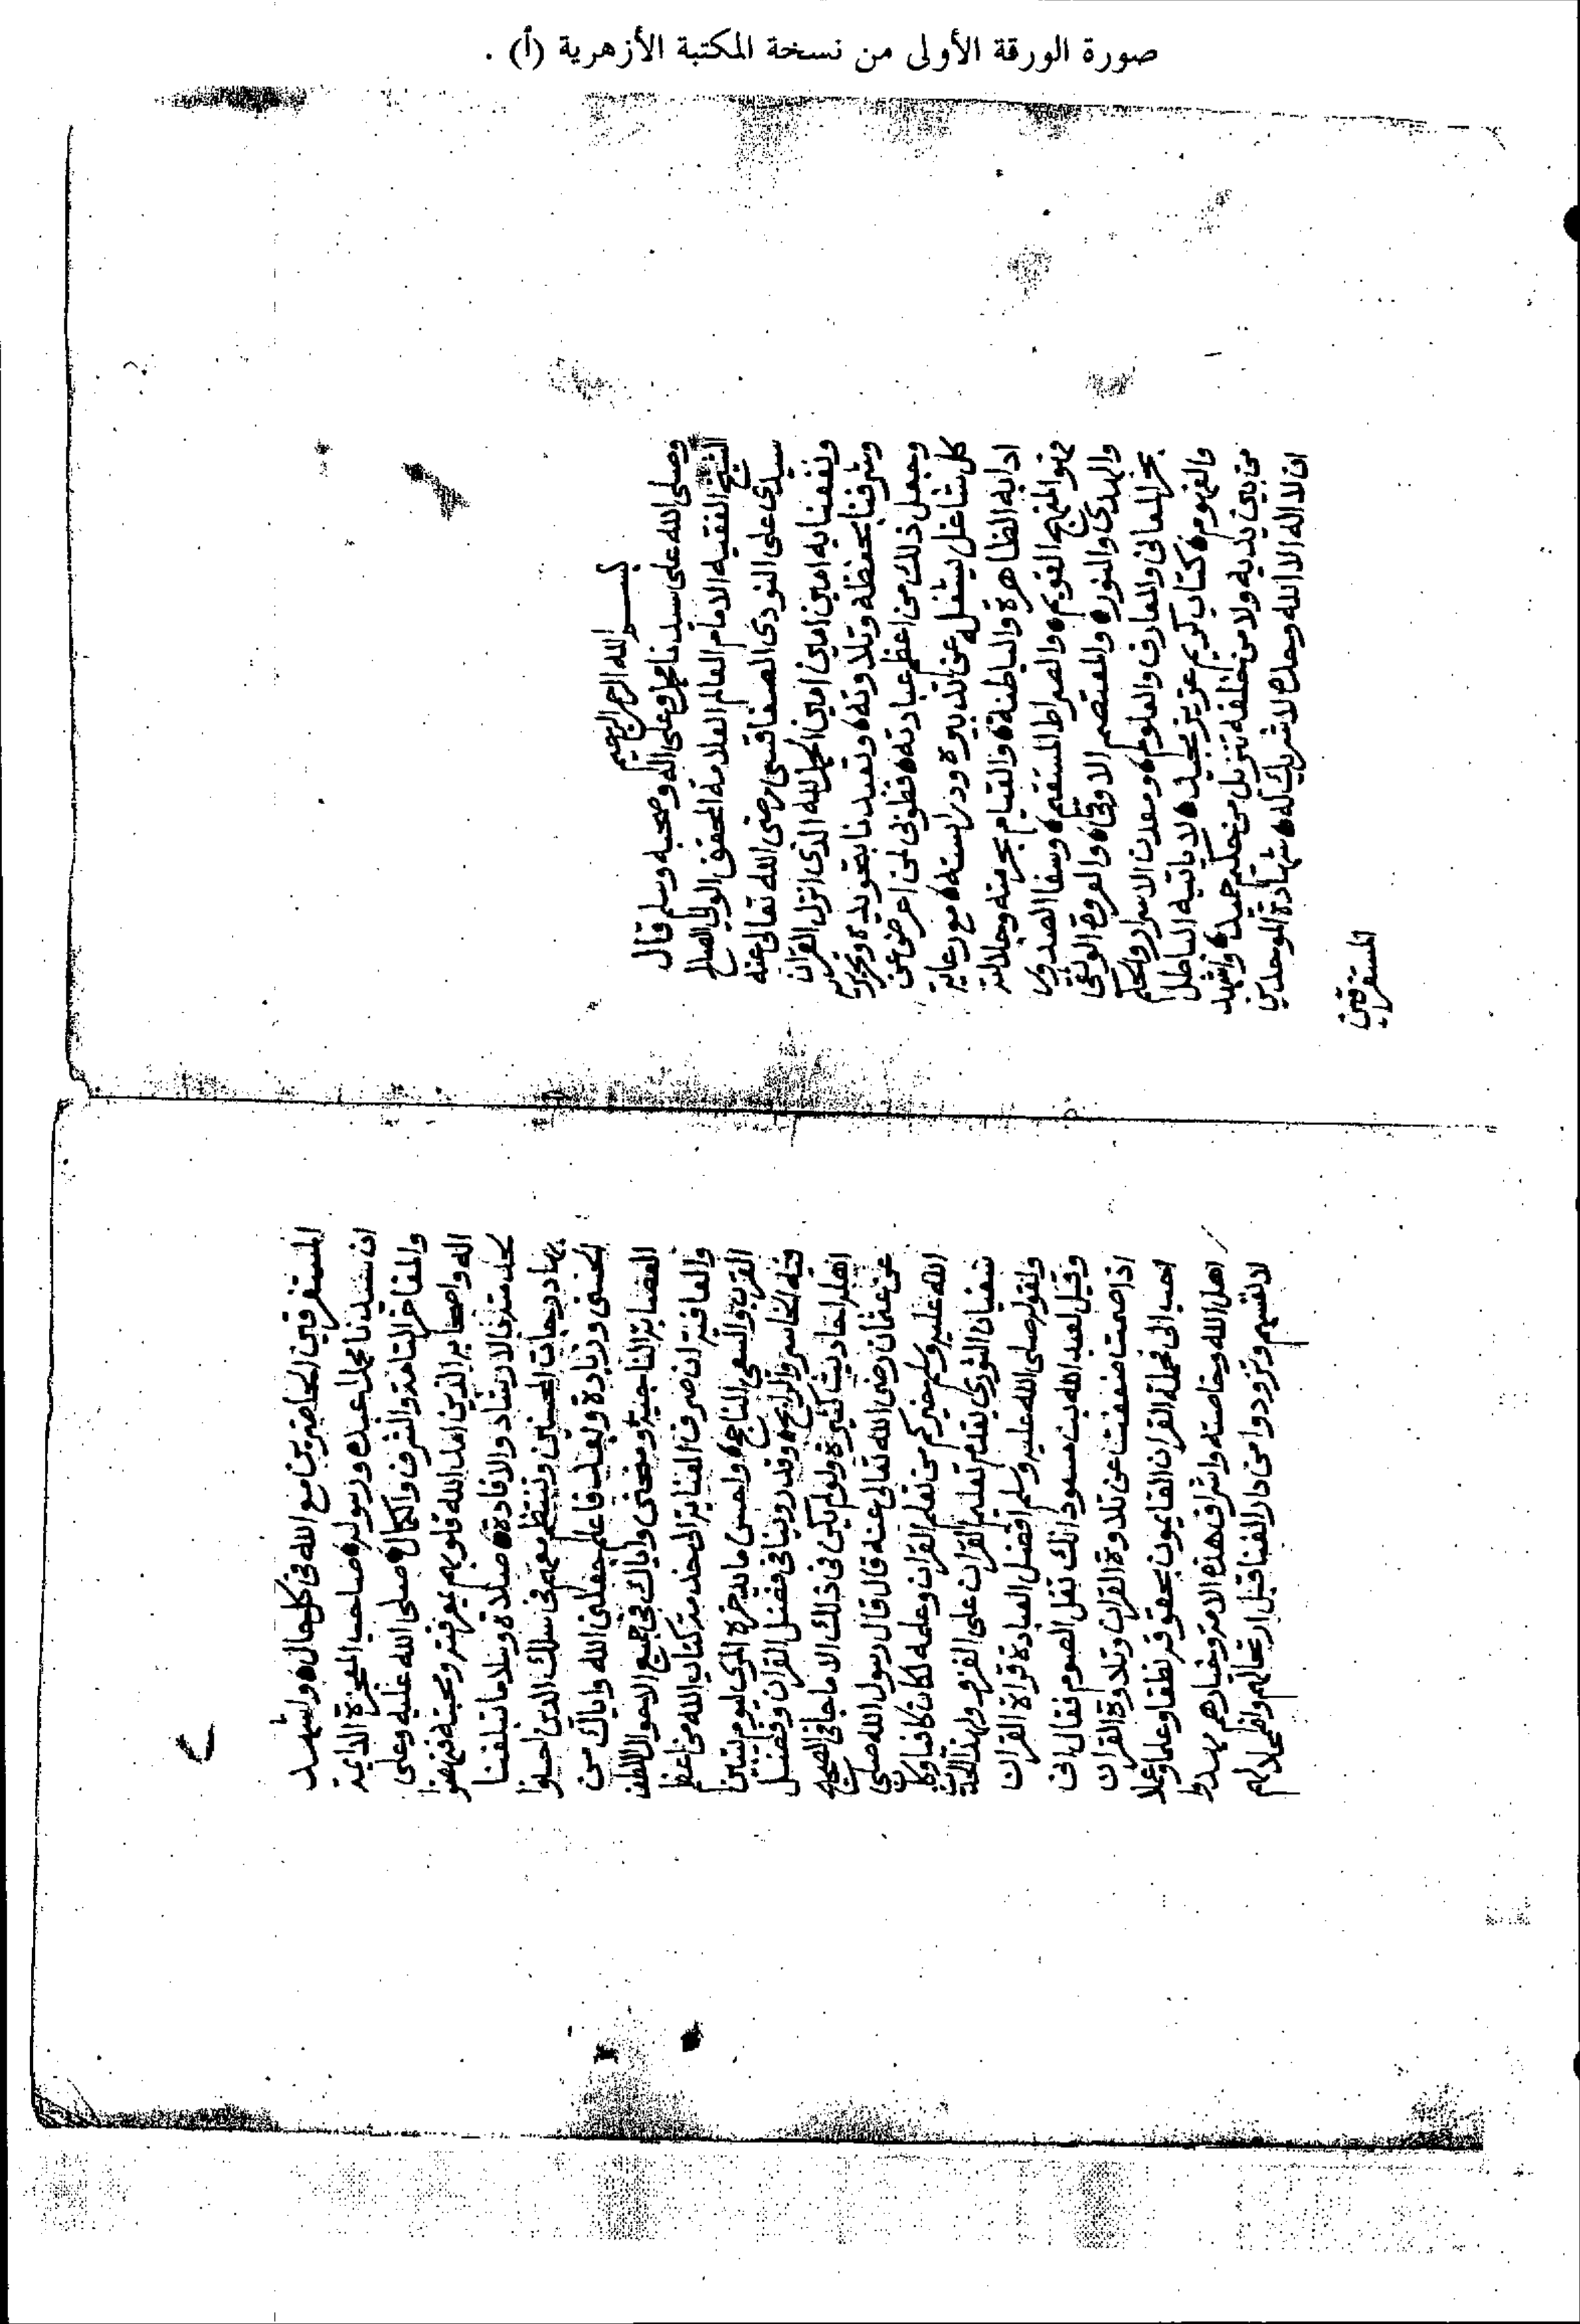 صورة الورقة الأولى من نسخة المكتبة الأزهرية (أ) .
بسم الله الرحمن الرحيم
وصلى الله على سيدنا محمد وعلى اله وصحبه وسلم قال
الشيخ الفقيه الامام العالم العلامة المحقق الولي الصالح
سيدي على النوري الصفاقسي رضى الله تعالى عنه
ونفعنا به امين امين امين الحمد لله الذي انزل القران
وشرفنا بحفظه وتلاوته وتعبدنا بتجويده وتحريره
وجعل ذلك من اعظم عبادته فطوبى لمن اعرض عن
كل شاغل يشغله عن تدبره ودراسته مع رعاية
ادابه الظاهرة والباطنة والقيام بحرمته وجلالته
فهو المنهج القويم والصراط المستقيم وشفا الصدور
والهدى والنور والمعتصم الاوقى والعروة الوثقى
بحر المعانى والمعارف والعلوم ومعدن الاسرار والحكم
والفهوم كتاب كريم عزيز مجيد لا ياتيه الباطل
من بين يديه ولا من خلفه تنزيل من حكيم حميد واشهد
ان لا اله الا الله وحده لا شريك له شهادة الموحدين
المستغرقين
المستغرقين الحاضرين مع الله فى كل حال واشهد
ان سيدنا محمدا عبده ورسوله صاحب المعجزة الدائمة
والمفاخر التامة والشرف والكمال صلى الله عليه وعلى
اله واصحابه الذين امد الله قلوبهم بمعرفته ومحبته فنهضوا
لخدمته الارشاد والافادة صلاة وسلاما تبلغنا
بهما درجات المحبين وننتظم معهم فى سلك الذين احسنوا
الحسنى وزيادة وبعد فاعلم جعلنى الله واياك من
العصابة الناجية ومنحنى واياك فى جميع الاحوال اللطف
والعافية ان صرف العناية الى خدمة كتاب الله من اعظم
القرب والسعى الناجح واحسن ما يدخره المرء ليوم يتبين
فيه الخاسر والرابح وقد روينا فى فضل القران وفضل
اهله احاديث كثيرة ولو لم يكن فى ذلك الا ما جا فى الصحيح
عن عثمان رضى الله تعالى عنه قال قال رسول الله صلى
الله عليه وسلم خيركم من تعلم القران وعلمه لكان كافيا وكان
سفيان الثوري يقدم تعليم القران على الغزو ولهذا الحديث
ولقوله صلى الله عليه وسلم افضل العبادة قراة القران
وقيل لعبد الله بن مسعود انك تقل الصوم فقال انى
اذا صمت ضعفت عن تلاوة القران وتلاوة القران
احب الى فحملة القران القايمون بحقوقه نطقا وعلما وعملا
اهل الله وخاصته واشراف هذه الامة وخيارهم
لانفسهم وتزودوا من دار الفنا قبل ارتحالهم